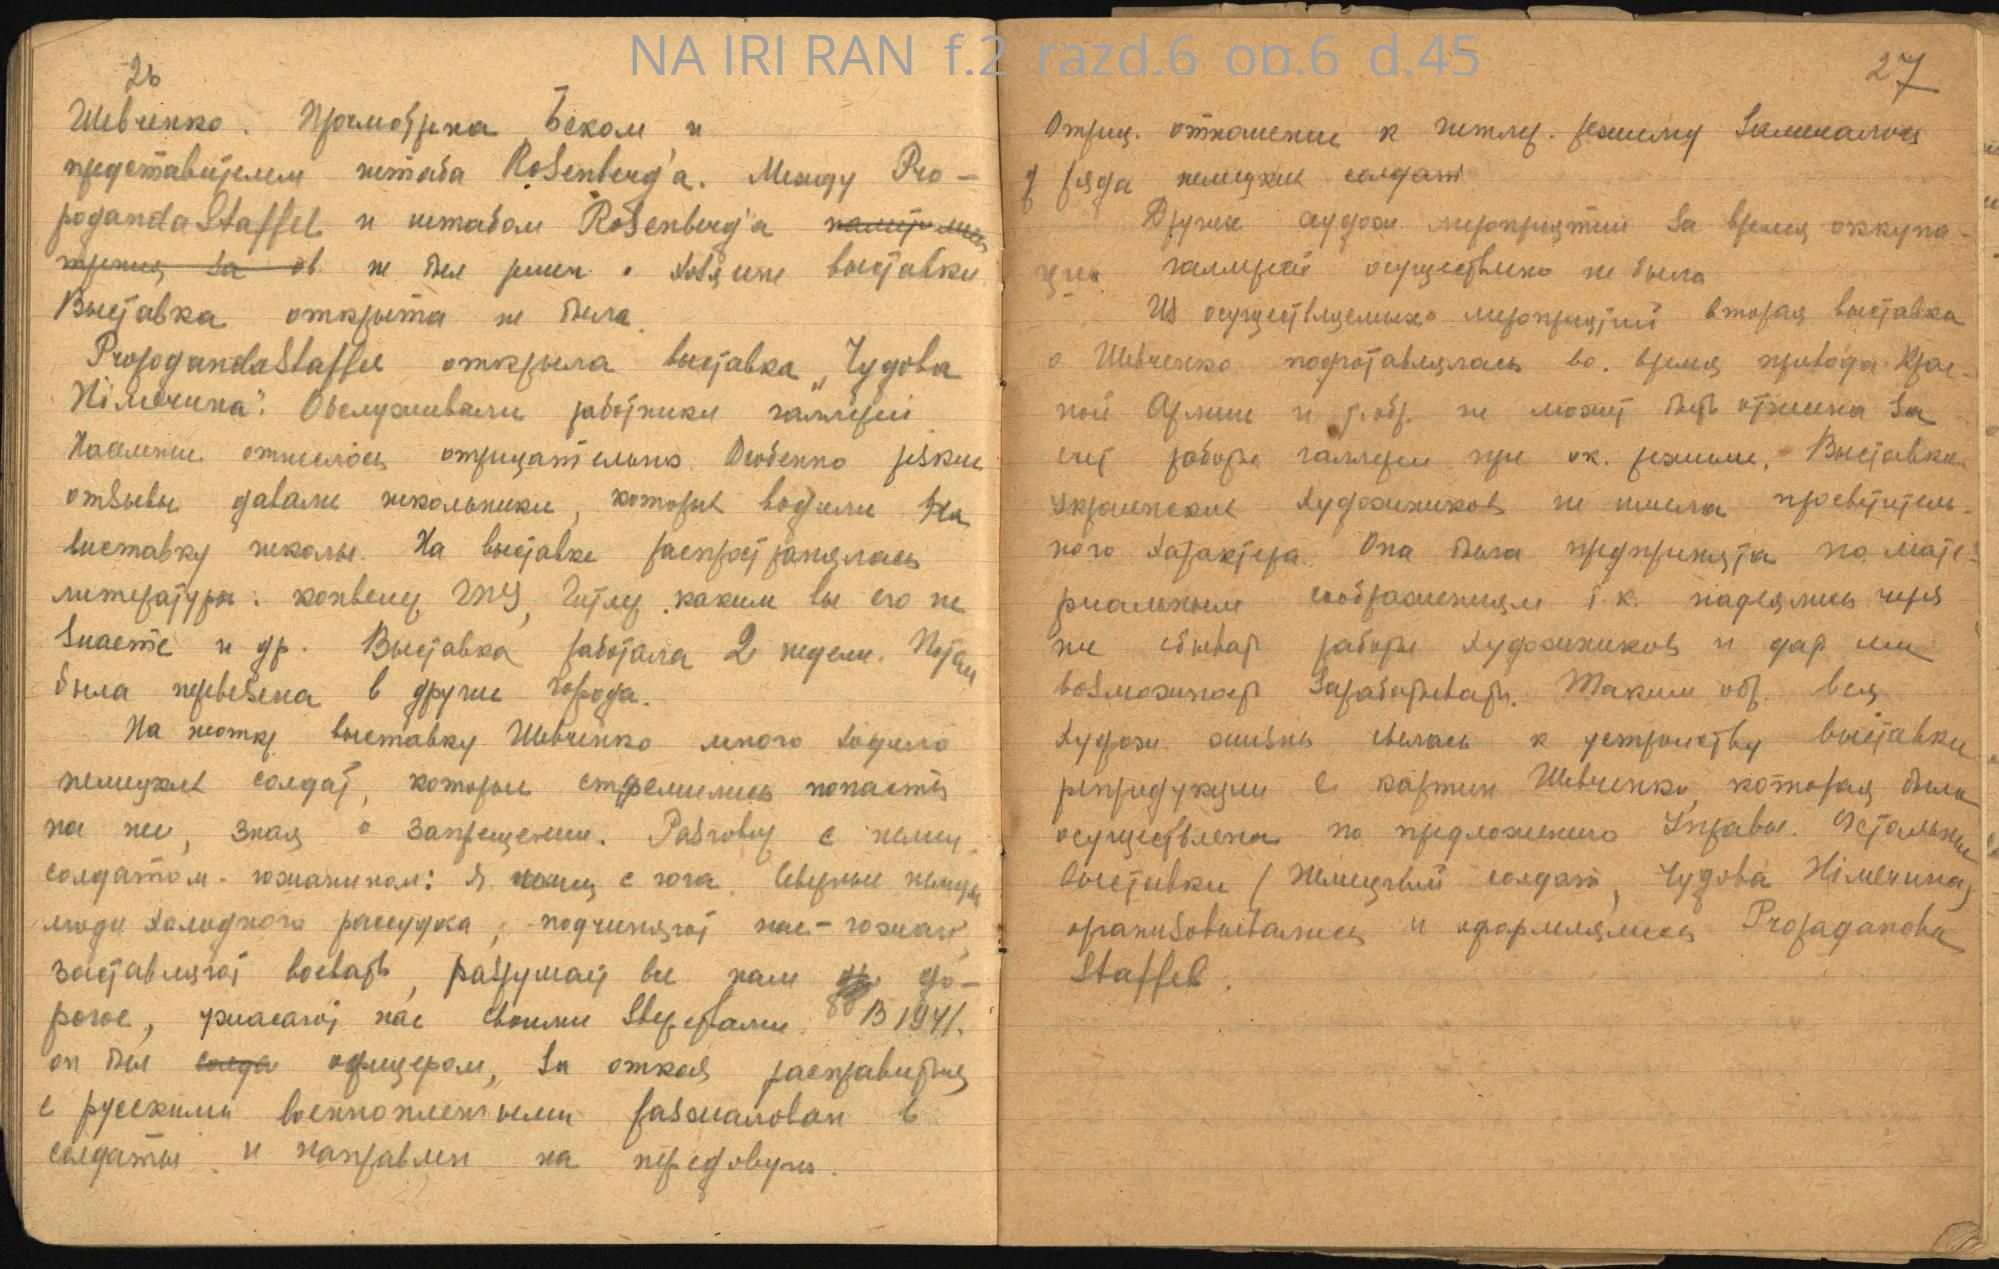 NA IRI RAN f.2 razd.6 op.6 d.45
26
Шевченко. Просмотрена Беком и
представителем штаба Rosenberg'а. Между Pro-
pogandaStaffel и штабом Rosenberg'а
не был решен о хозяине выставки.
Выставка открыта не была.
PropogandaStaffel открыла выставка „Чудова
Нiмеччина". Обслуживали работники галлереи.
Население отнеслось отрицательно. Особенно резкие
отзывы давали школьники, которых водили на
выставку школы. На выставке распространялась
литература: конвеер ГПУ, Гитлер каким вы его не
знаете и др. Выставка работала 2 недели. Потом
была перевезена в другие города.
На выставку Шевченко много ходило
немецких солдат, которые стремились попасть
на нее, зная о запрещении. Разговор с немец.
солдатом - южанином: Я немец с юга. Северные немцы
люди холодного рассудка, подчиняют нас - южан,
заставляют воевать, разрушают все нам до-
рогое, ужасают нас своими зверствами. В 1941г.
он был солда офицером, за отказ расправиться
с русскими военнопленными разжалован в
солдаты и направлен на передовую.
27
Отриц. отношение к гитлер. режиму замечалось
у ряда немецких солдат.
Других худож. мероприятий за время оккупа-
ции галлереей осуществлено не было
Из осуществляемых мероприятий вторая выставка
о Шевченко подготавлялась во время прихода Крас-
ной Армии и т.обр. не может быть отнесена за
счет работы галлереи при ок. режиме. Выставка
украинских художников не имела просветитель-
ного характера. Она была предпринята по мате-
риальным соображениям т.к. надеялись через
нее сбывать работы художников и дать им
возможность зарабатывать. Таким обр. вся
худож. жизнь свелась к устройству выставки
репродукции с картин Шевченко, которая была
осуществлена по предложению Управы. Остальные
выставки (Немецкий солдат, Чудова Нiмеччина)
организовывались и оформлялись Propaganda
Staffel.